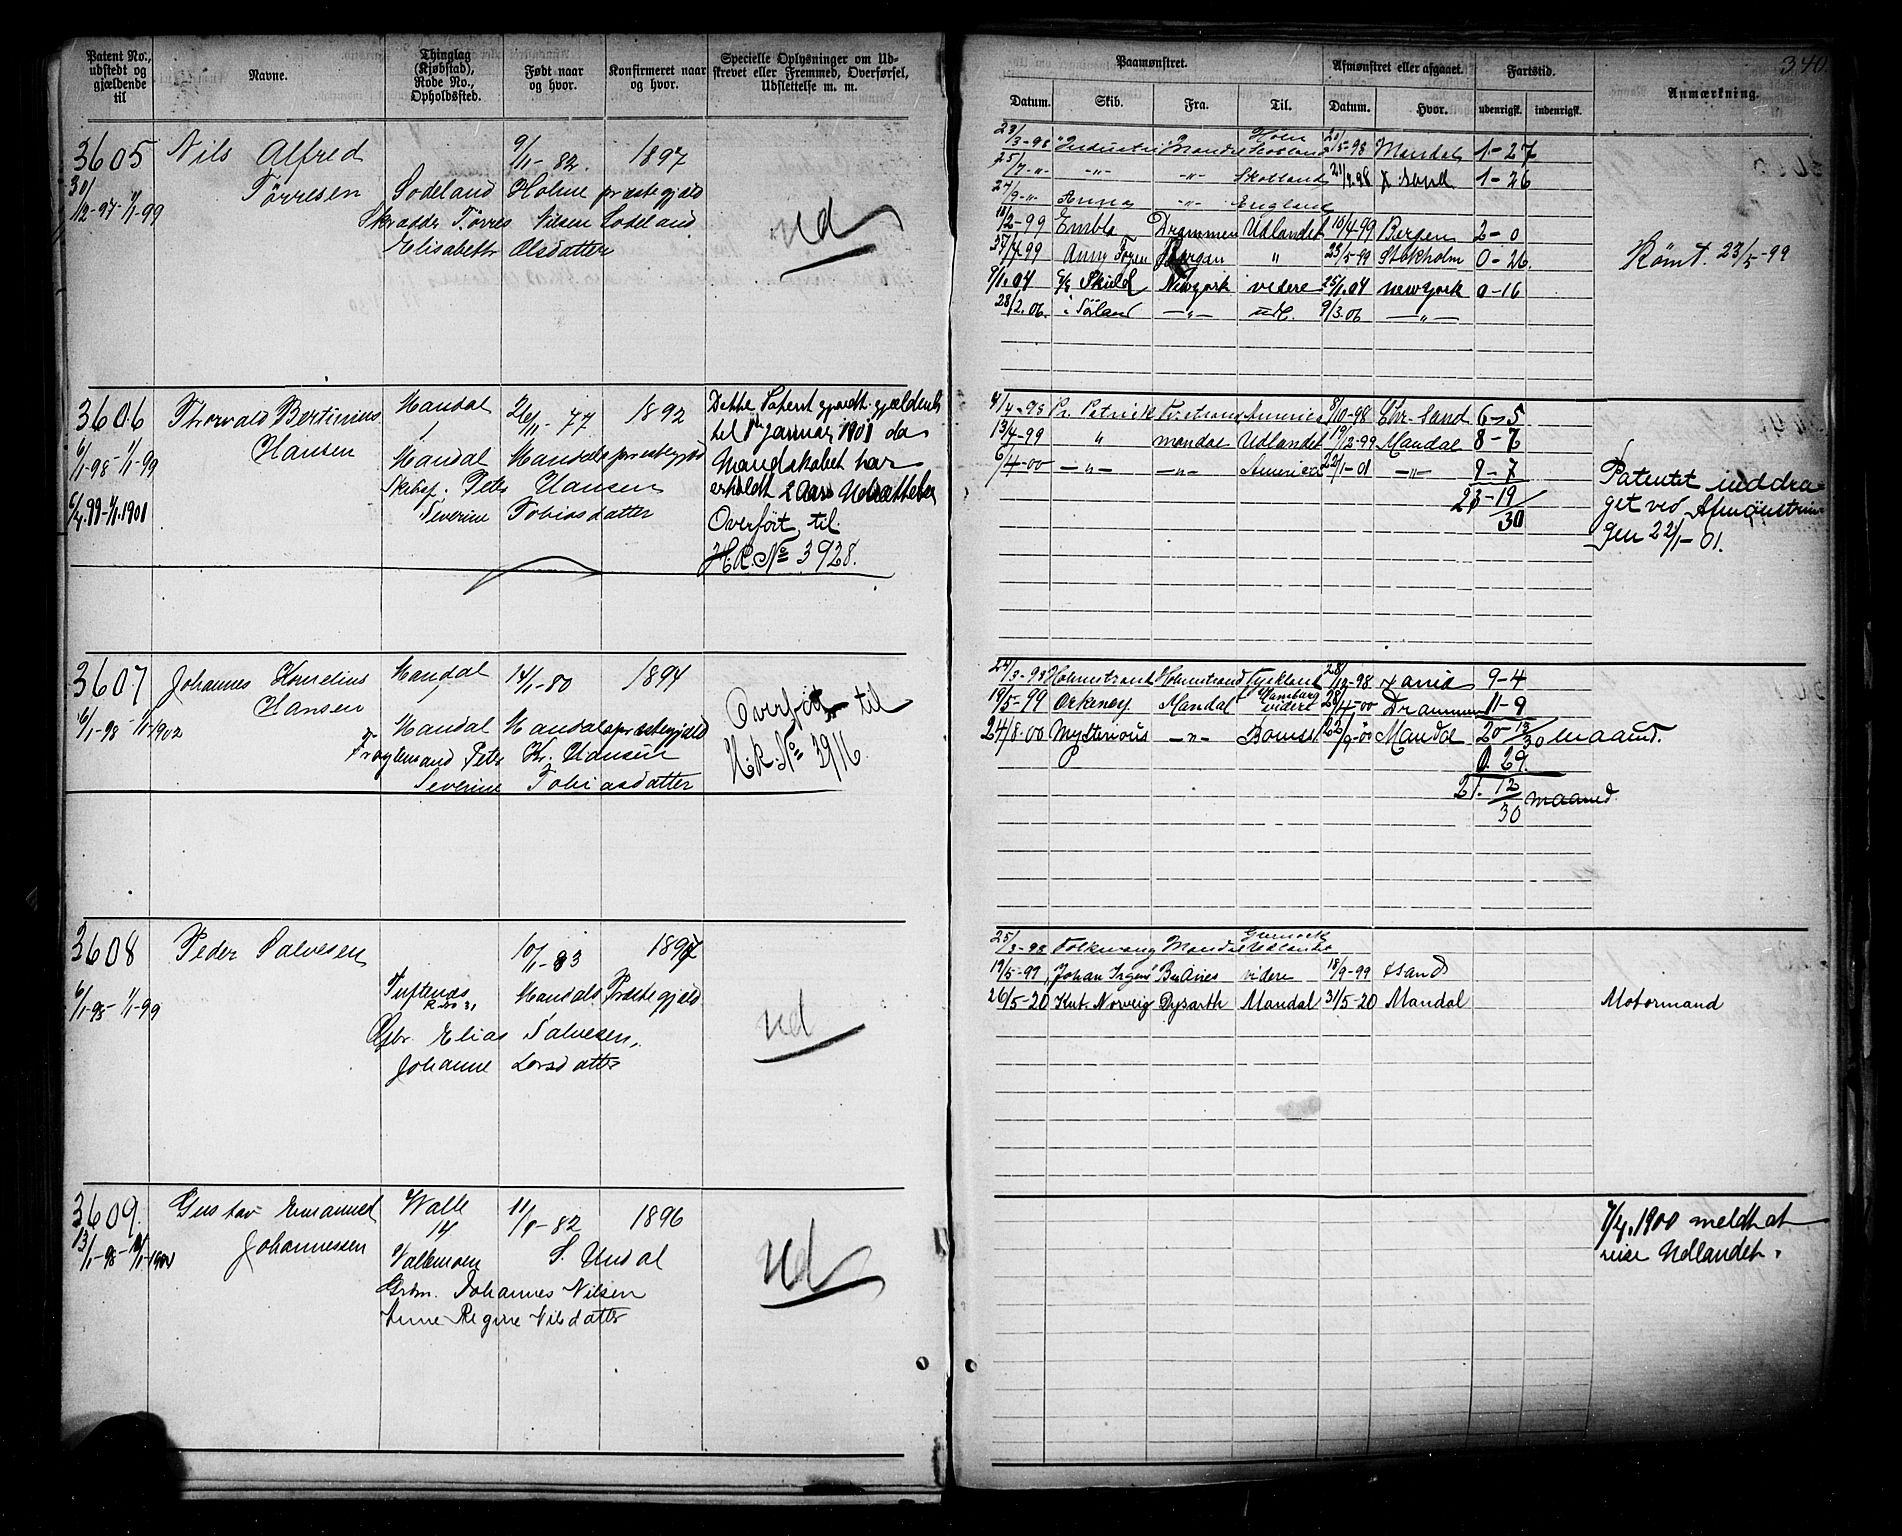 340.
Patent No., udstedt og gjældende til
Navne.
Thinglag (Kjøbstad), Rode No., Opholdssted.
Født naar og hvor.
Konfirmeret naar og hvor.
Specielle Oplysninger om Udskrevet eller Fremmed, Overførsel, Udslettelse m. m.
Paamønstret.
Datum. Skib. Fra. Til.
Afmønstret eller afgaaet.
Datum. Hvor.
Fartstid.
udenrigsk. indenrigsk.
Anmærkning.
3605 Nils Alfred 9/11-82. 1897
30/12-97 1/1-99 Tørresen Sodeland Holme præstegjæld
Skrædder Tørres Nilsen Sodeland
Elisabeth Olsdatter
ud
23/3-98 Industri Mandal Skotland 20/5-98 Mandal 1-27
25/7-"- -"- -"- Skotland X Sand 1-26
Anna -"- England
18/2-99 Embla Drammen Udlandet 10/4-99 Bergen 2-0
Bergen " 23/5-99 Stokholm 0-26.
9/1.04 Skjold Newyork videre 25/1.04 Newyork 0-16
28/2.06. -"- 9/3.06 -"-
Rømt. 23/5-99
3606 Thorvald Bertinius Mandal 26/11-77 1892
6/1-98-1/1-99 Hansen Mandal Mandals præstegjæld
Peter Hansen
Severine Tobiasdatter
6/4.99-1/1.1901
Dette Patent gjældende
til 1ste Januar 1901 da
Mandskabet har
erholdt 2 Aars Udsættelse
Overført til
H.R. No 3928.
4/4-98 Pr. Petrick America 8/10-98 Chr. Sand 6-5
13/4-99 " Mandal Udlandet 19/12-99 Mandal 8-7
6/4-00 -"- -"- America 22/1-01 -"- 9-7
23-19/30
Patentet inddra-
get ved Afmønstrin-
gen 22/1-01.
3607 Johannes Kornelius Mandal 14/1-80 1894
6/1-98 1/1 1902 Hansen Mandal Mandals præstegjæld
Peter Kr. Hansen
Severine Tobiasdatter
Overført til
H.R. No 3916.
24/3-98 Holmestrand Holmestrand Tyskland 28/12-98 9-4
19/5-99 Orkenøy Mandal Hamburg videre 28/4-00 Drammen 11-9
24/8.00 Mysterious -"- 22/9-00 Mandal 20-13/30 maaned.
0.29.
21.12/30 maaned.
3608 Peder Salvesen 10/1-83 1897
6/1-98-1/1-99 Tuftenes Mandals Præstegjæld
Elias Salvesen,
Johanne Larsdatter
ud
25/3-98 Folkvang Mandal Udlandet
19/5-99 "Johan Irgens" videre 18/9-99 X sand
26/5-20 Kut. Norveig Dysarth Mandal 31/5-20 Mandal
Motormand
3609. Gustav Emanuel Walle 11/8-82 1896
Johannessen 14
Vallemoen S. Undal
Grdm. Johannes Nilsen
Anne Regine Nilsdatter
ud
7/4.1900 meldt at
reise Udlandet.